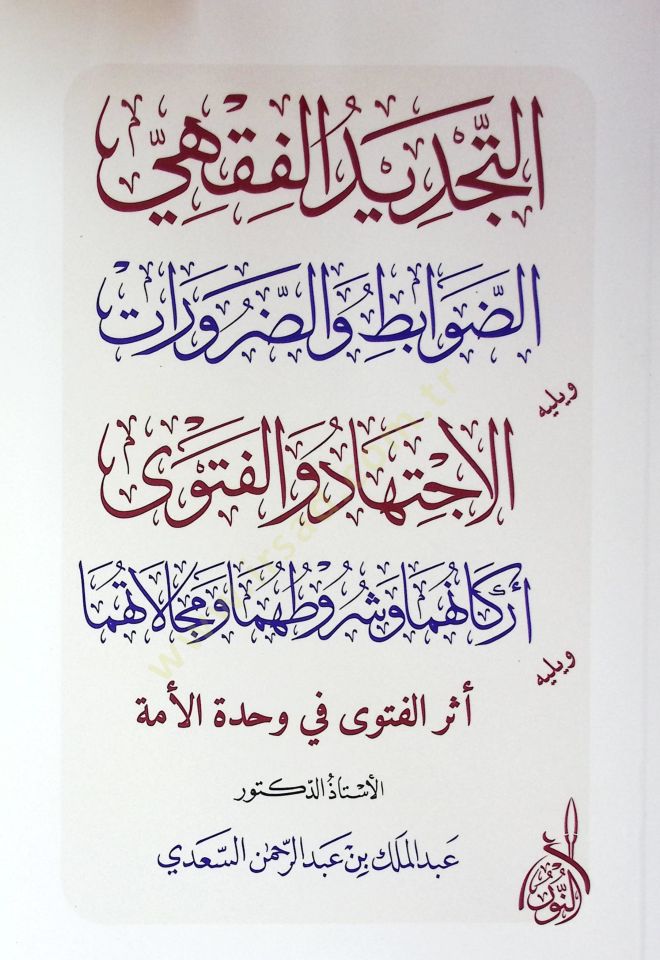 التَّجْدِيدُ الفِقْهِيّ
الضَّوَابِطُ وَالضَّرُورَات
ويليه
الاِجْتِهَادُ وَالفَتْوَى
أركَانُهُمَا وَشُرُوطُهُمَا وَمَجَالَاتُهُمَا
ويليه
أثر الفتوى في وحدة الأمة
الأسْتاذُ الدّكتور
عَبد الملَك بن عَبد الرَّحمٰن السَّعدي
النُّور